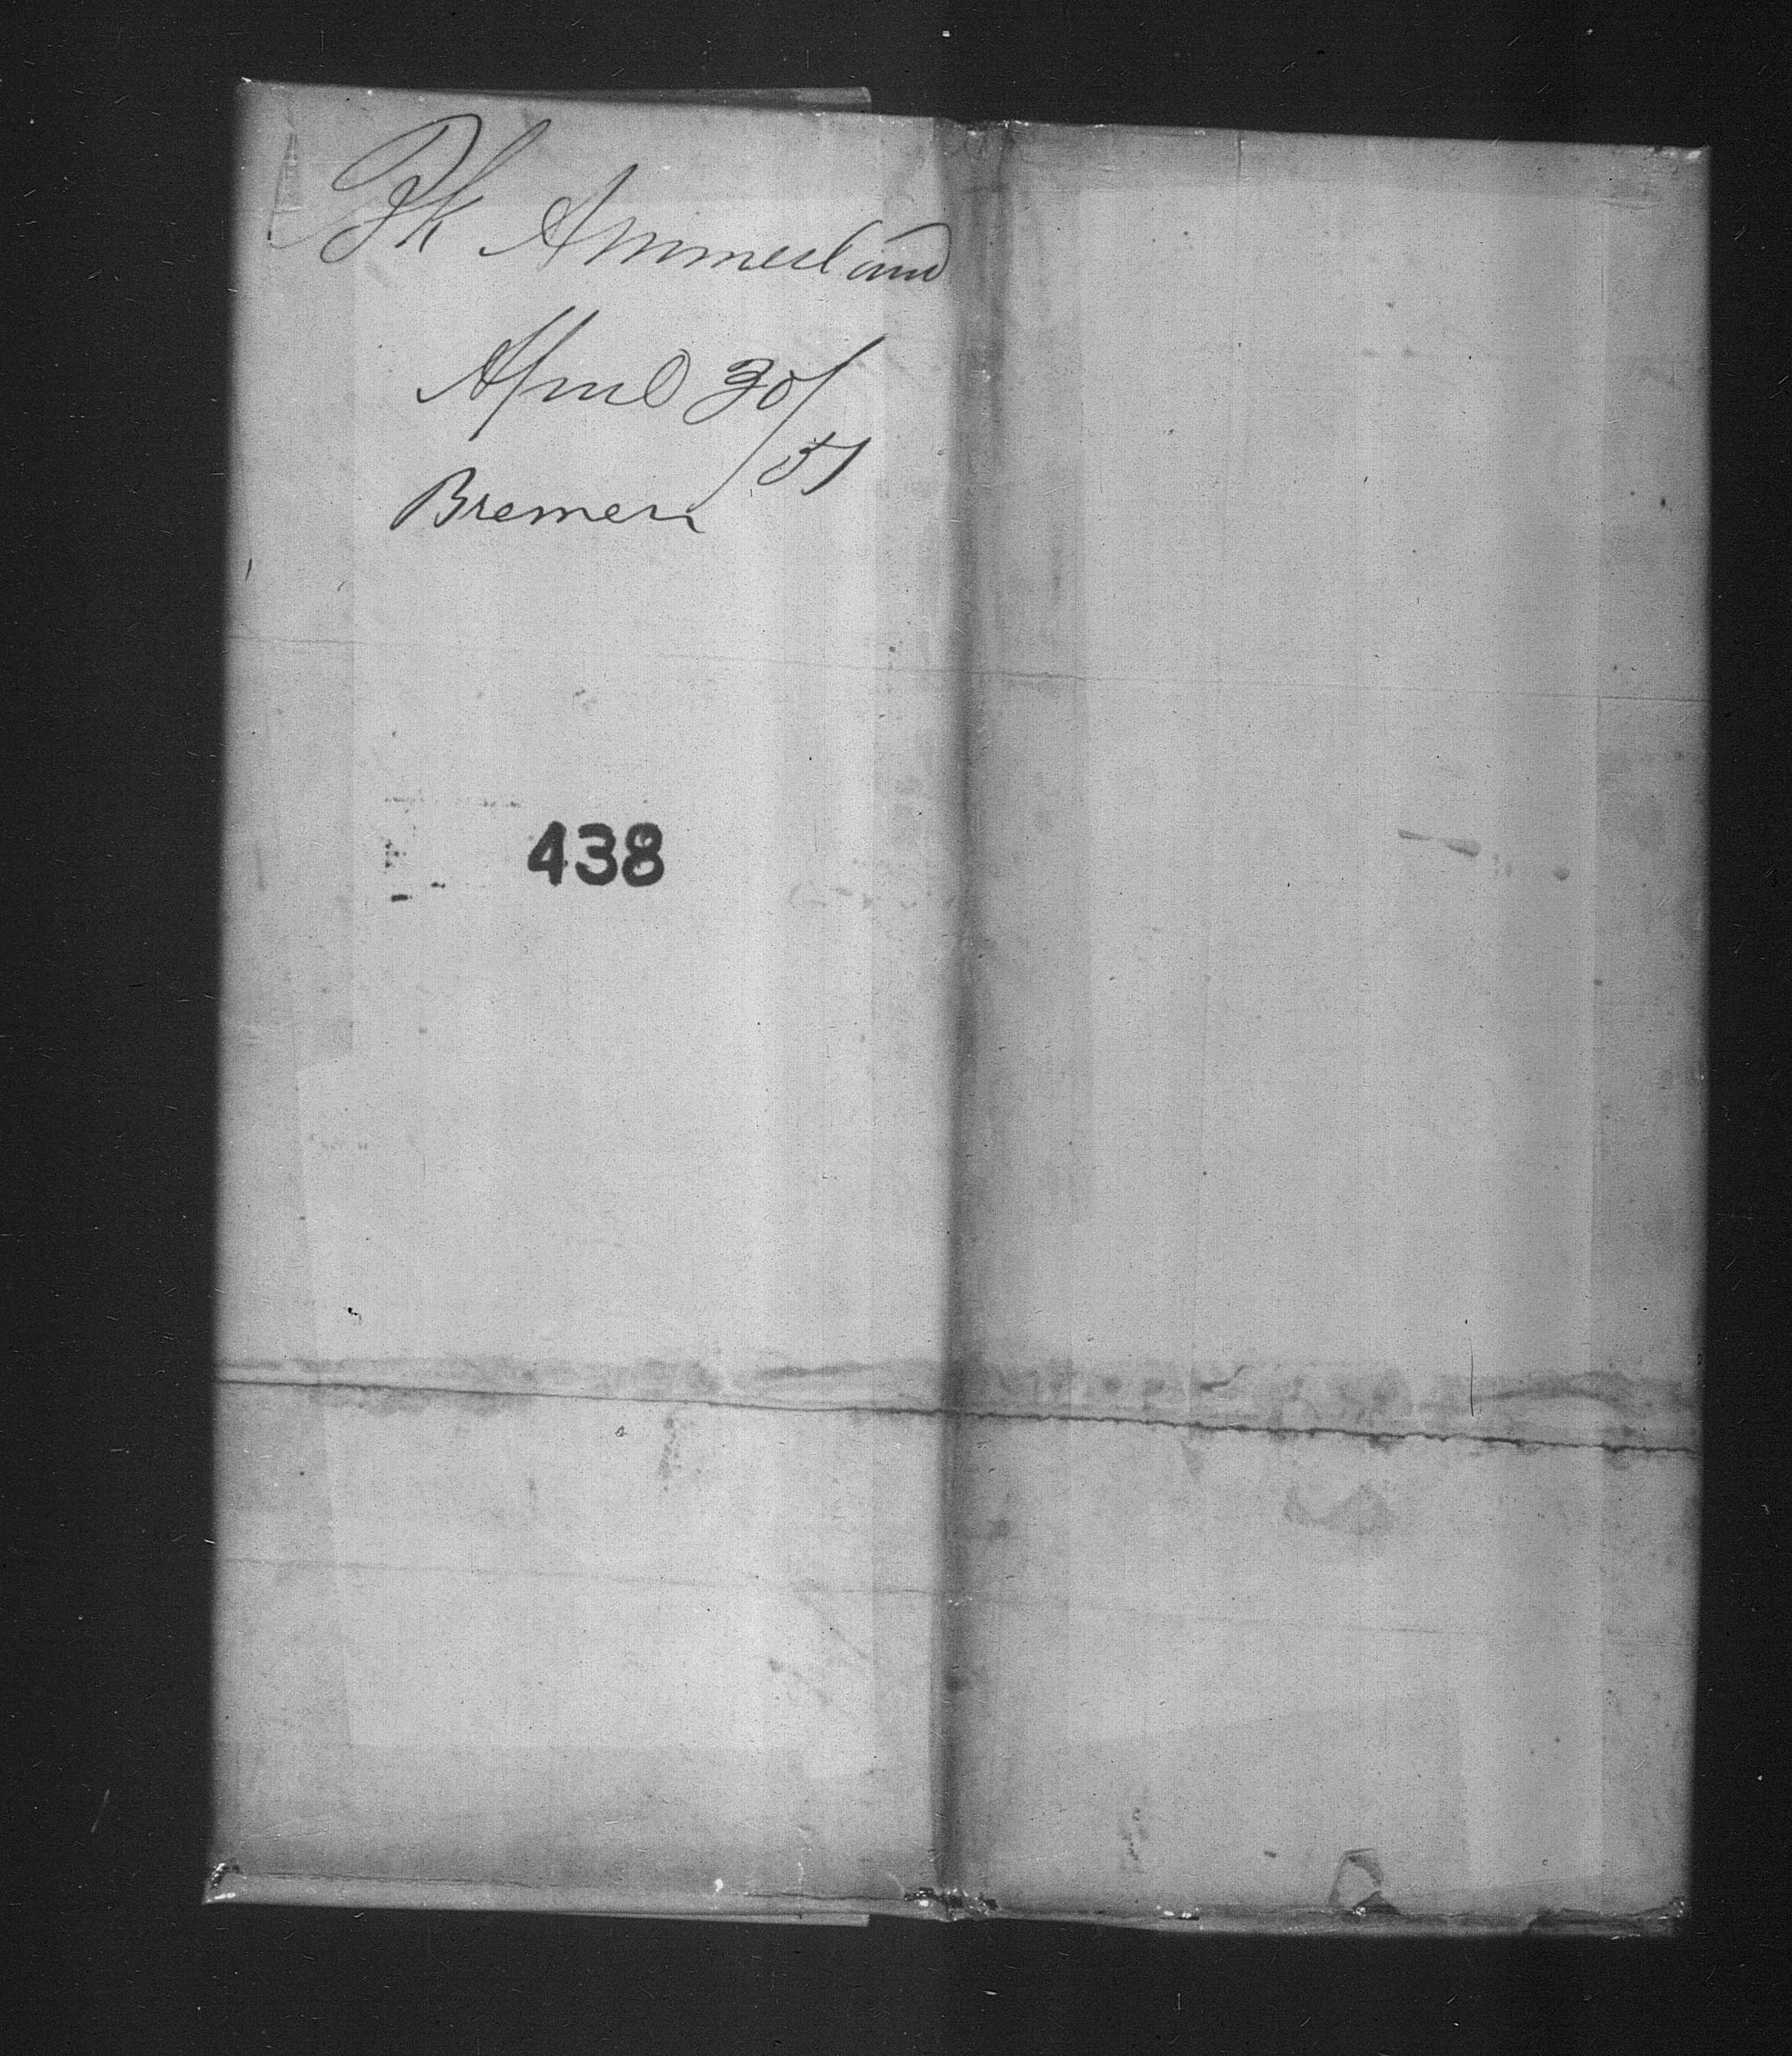 Bk Ammerland
April 30/
51
Bremen
438